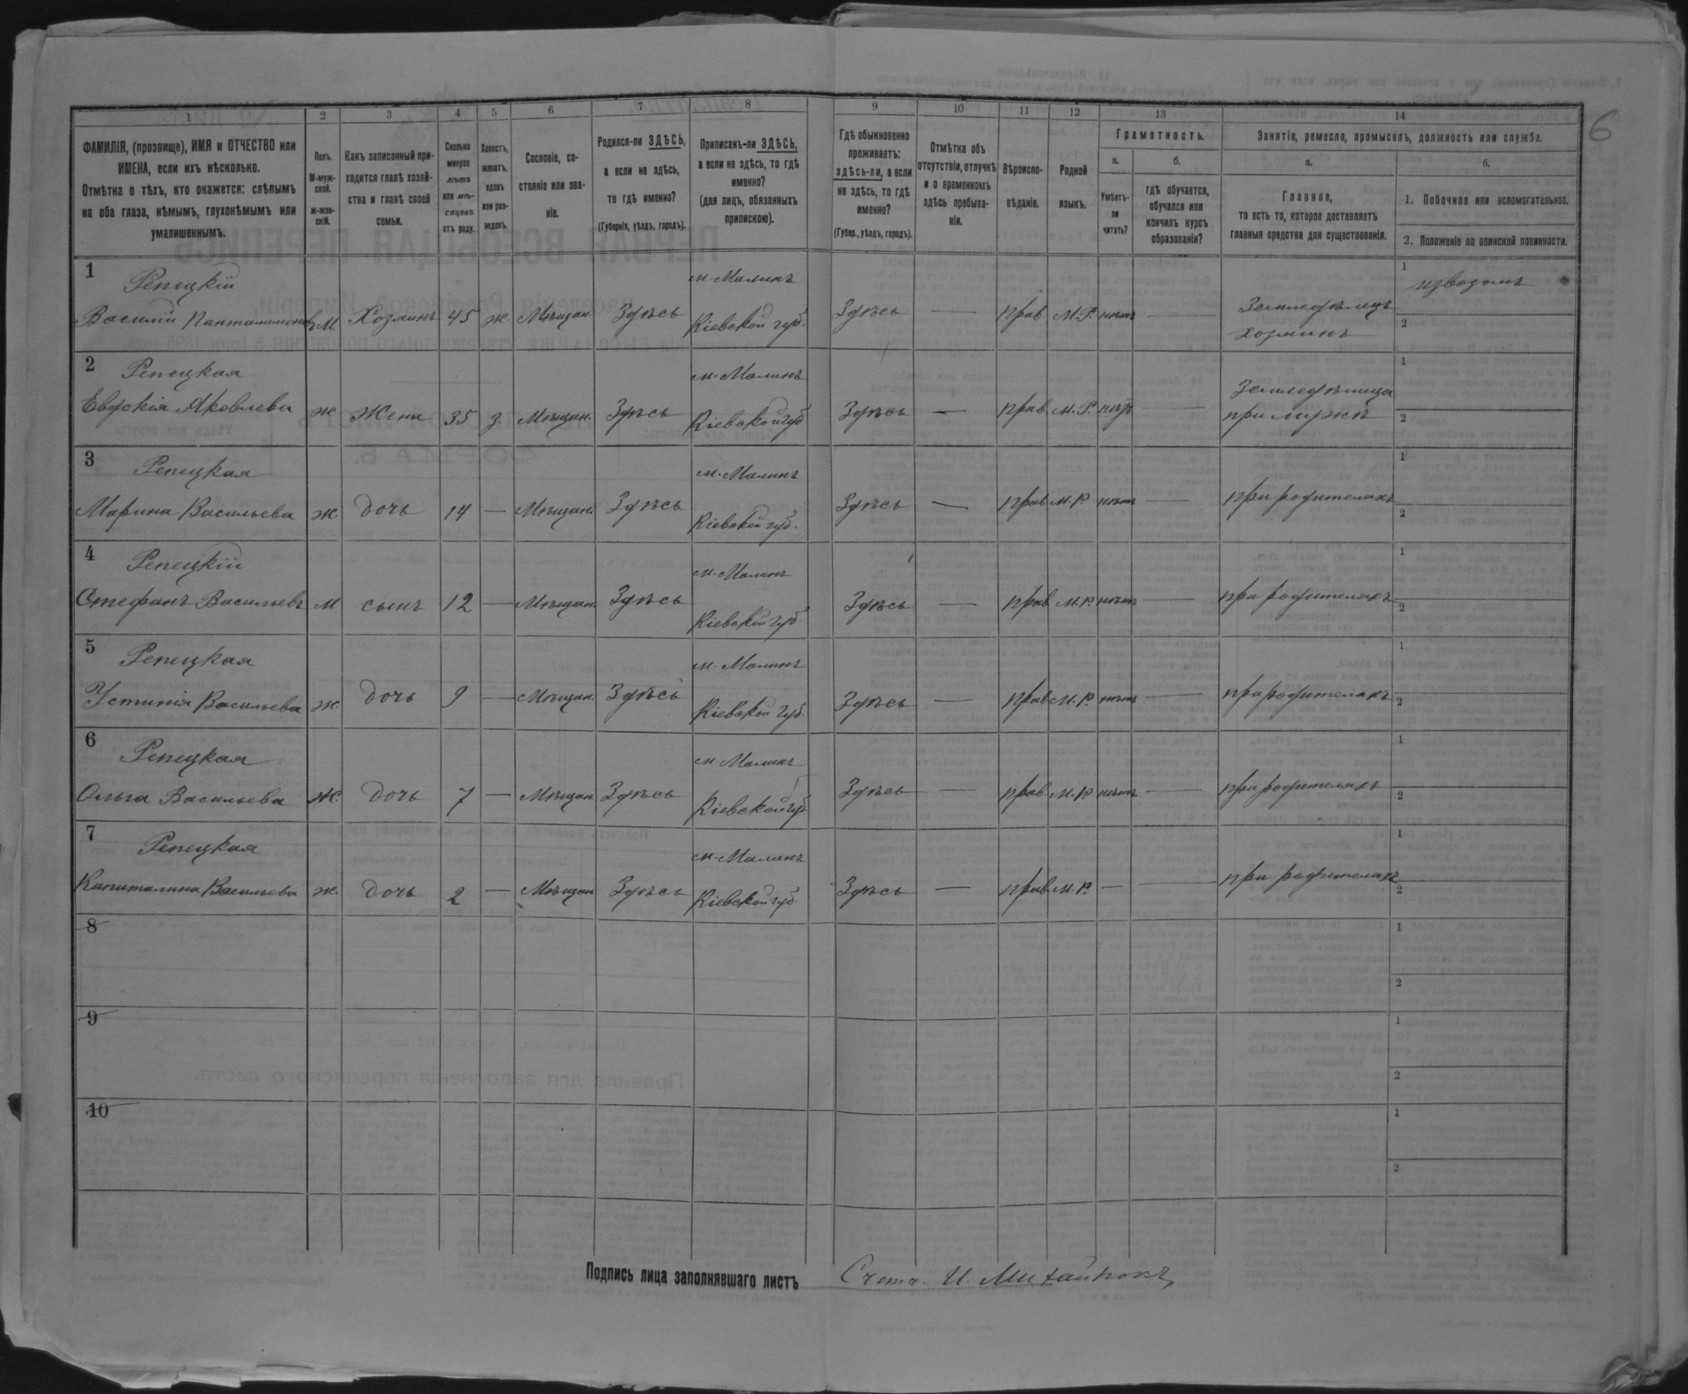 6
1 2 3 4 5 6 7 8 9 10 11 12 13 14
ФАМИЛІЯ, (прозвище), ИМЯ и ОТЧЕСТВО или
ИМЕНА, если ихъ нѣсколько.
Отмѣтка о тѣхъ, кто окажется: слѣпымъ
на оба глаза, нѣмымъ, глухонѣмымъ или
умалишеннымъ.
Полъ.
М-муж-
ской.
Ж-жен-
скій.
Какъ записанный при-
ходится главѣ хозяй-
ства и главѣ своей
семьи.
Сколько
минуло
лѣтъ
или мѣ-
сяцевъ
отъ роду.
Холостъ,
женатъ,
вдовъ
или раз-
веденъ.
Сословіе, со-
стояніе или зва-
ніе.
Родился-ли ЗДѢСЬ,
а если не здѣсь,
то гдѣ именно?
(Губернія, уѣздъ, городъ).
Приписанъ-ли ЗДѢСЬ,
а если не здѣсь, то гдѣ
именно?
(для лицъ, обязанныхъ
припискою).
Гдѣ обыкновенно
проживаетъ:
здѣсь-ли, а если
не здѣсь, то гдѣ
именно?
(Губер., уѣздъ, городъ).
Отмѣтка объ
отсутствіи, отлучкѣ
и о временномъ
здѣсь пребыва-
ніи.
Вѣроиспо-
вѣданіе.
Родной
языкъ.
Грамотность.
а.
Умѣетъ-
ли
читать?
б.
гдѣ обучается,
обучался или
кончилъ курсъ
образованія?
Занятіе, ремесло, промыселъ, должность или служба.
а.
Главное,
то есть то, которое доставляетъ
главныя средства для существованія.
б.
1. Побочное или вспомогательное.
2. Положеніе по воинской повинности.
1 Репецкій м. Малинъ 1 извозомъ
Василій Пантелимоновъ М. Хозяинъ 45 ж Мѣщан. Здѣсь Кіевской губ. Здѣсь — прав. М.Р. нѣтъ — Земледѣлецъ
хозяинъ 2
2 Репецкая м. Малинъ Земледѣлица 1
Евдокія Яковлева ж Жена 35 з. Мѣщан. Здѣсь Кіевской губ. Здѣсь — прав. М.Р. нѣтъ — при мужѣ 2
3 Репецкая м. Малинъ 1
Марина Васильева ж дочь 14 — Мѣщан. Здѣсь Кіевской губ. Здѣсь — прав. М.Р. нѣтъ — при родителяхъ 2
4 Репецкій м. Малинъ 1
Стефанъ Васильевъ м сынъ 12 — Мѣщан. Здѣсь Кіевской губ. Здѣсь — прав. М.Р. нѣтъ — при родителяхъ 2
5 Репецкая м. Малинъ 1
Устинія Васильева ж дочь 9 — Мѣщан. Здѣсь Кіевской губ. Здѣсь — прав. М.Р. нѣтъ — при родителяхъ 2
6 Репецкая м. Малинъ 1
Ольга Васильева ж. дочь 7 — Мѣщан. Здѣсь Кіевской губ. Здѣсь — прав. М.Р. нѣтъ — при родителяхъ 2
7 Репецкая м. Малинъ 1
Капиталина Васильева ж. дочь 2 — Мѣщан. Здѣсь Кіевской губ. Здѣсь — прав. М.Р. — — при родителях 2
8 1
2
9 1
2
10 1
2
Подпись лица заполнявшаго листъ Счетч. И.